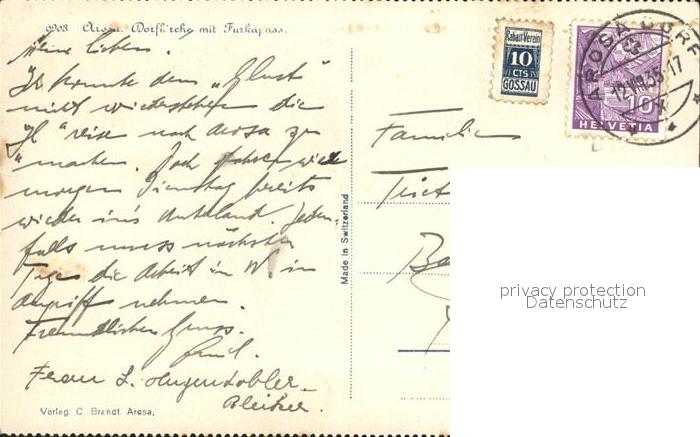 6903 Arosa. Dorfkirche mit Furkapass.
Meine Lieben.
Ich konnte dem "Glust"
nicht wiederstehen die
reise nach Arosa zu
machen. Ich fahre wieder
morgen Dienstag bereits
wieder ins Unterland. Jeden-
falls muss nächster
Tage die Arbeit in W. in
Angriff nehmen.
Freundlichen Gruss.
Emil.
Frau L. Hugentobler-
Bleiker.
Verlag: C. Brandt, Arosa.
Made in Switzerland
Rabatt-Verein
10
CTS
GOSSAU
AROSA DORF
12.VIII.35-17
10
HELVETIA
Familie
privacy protection
Datenschutz